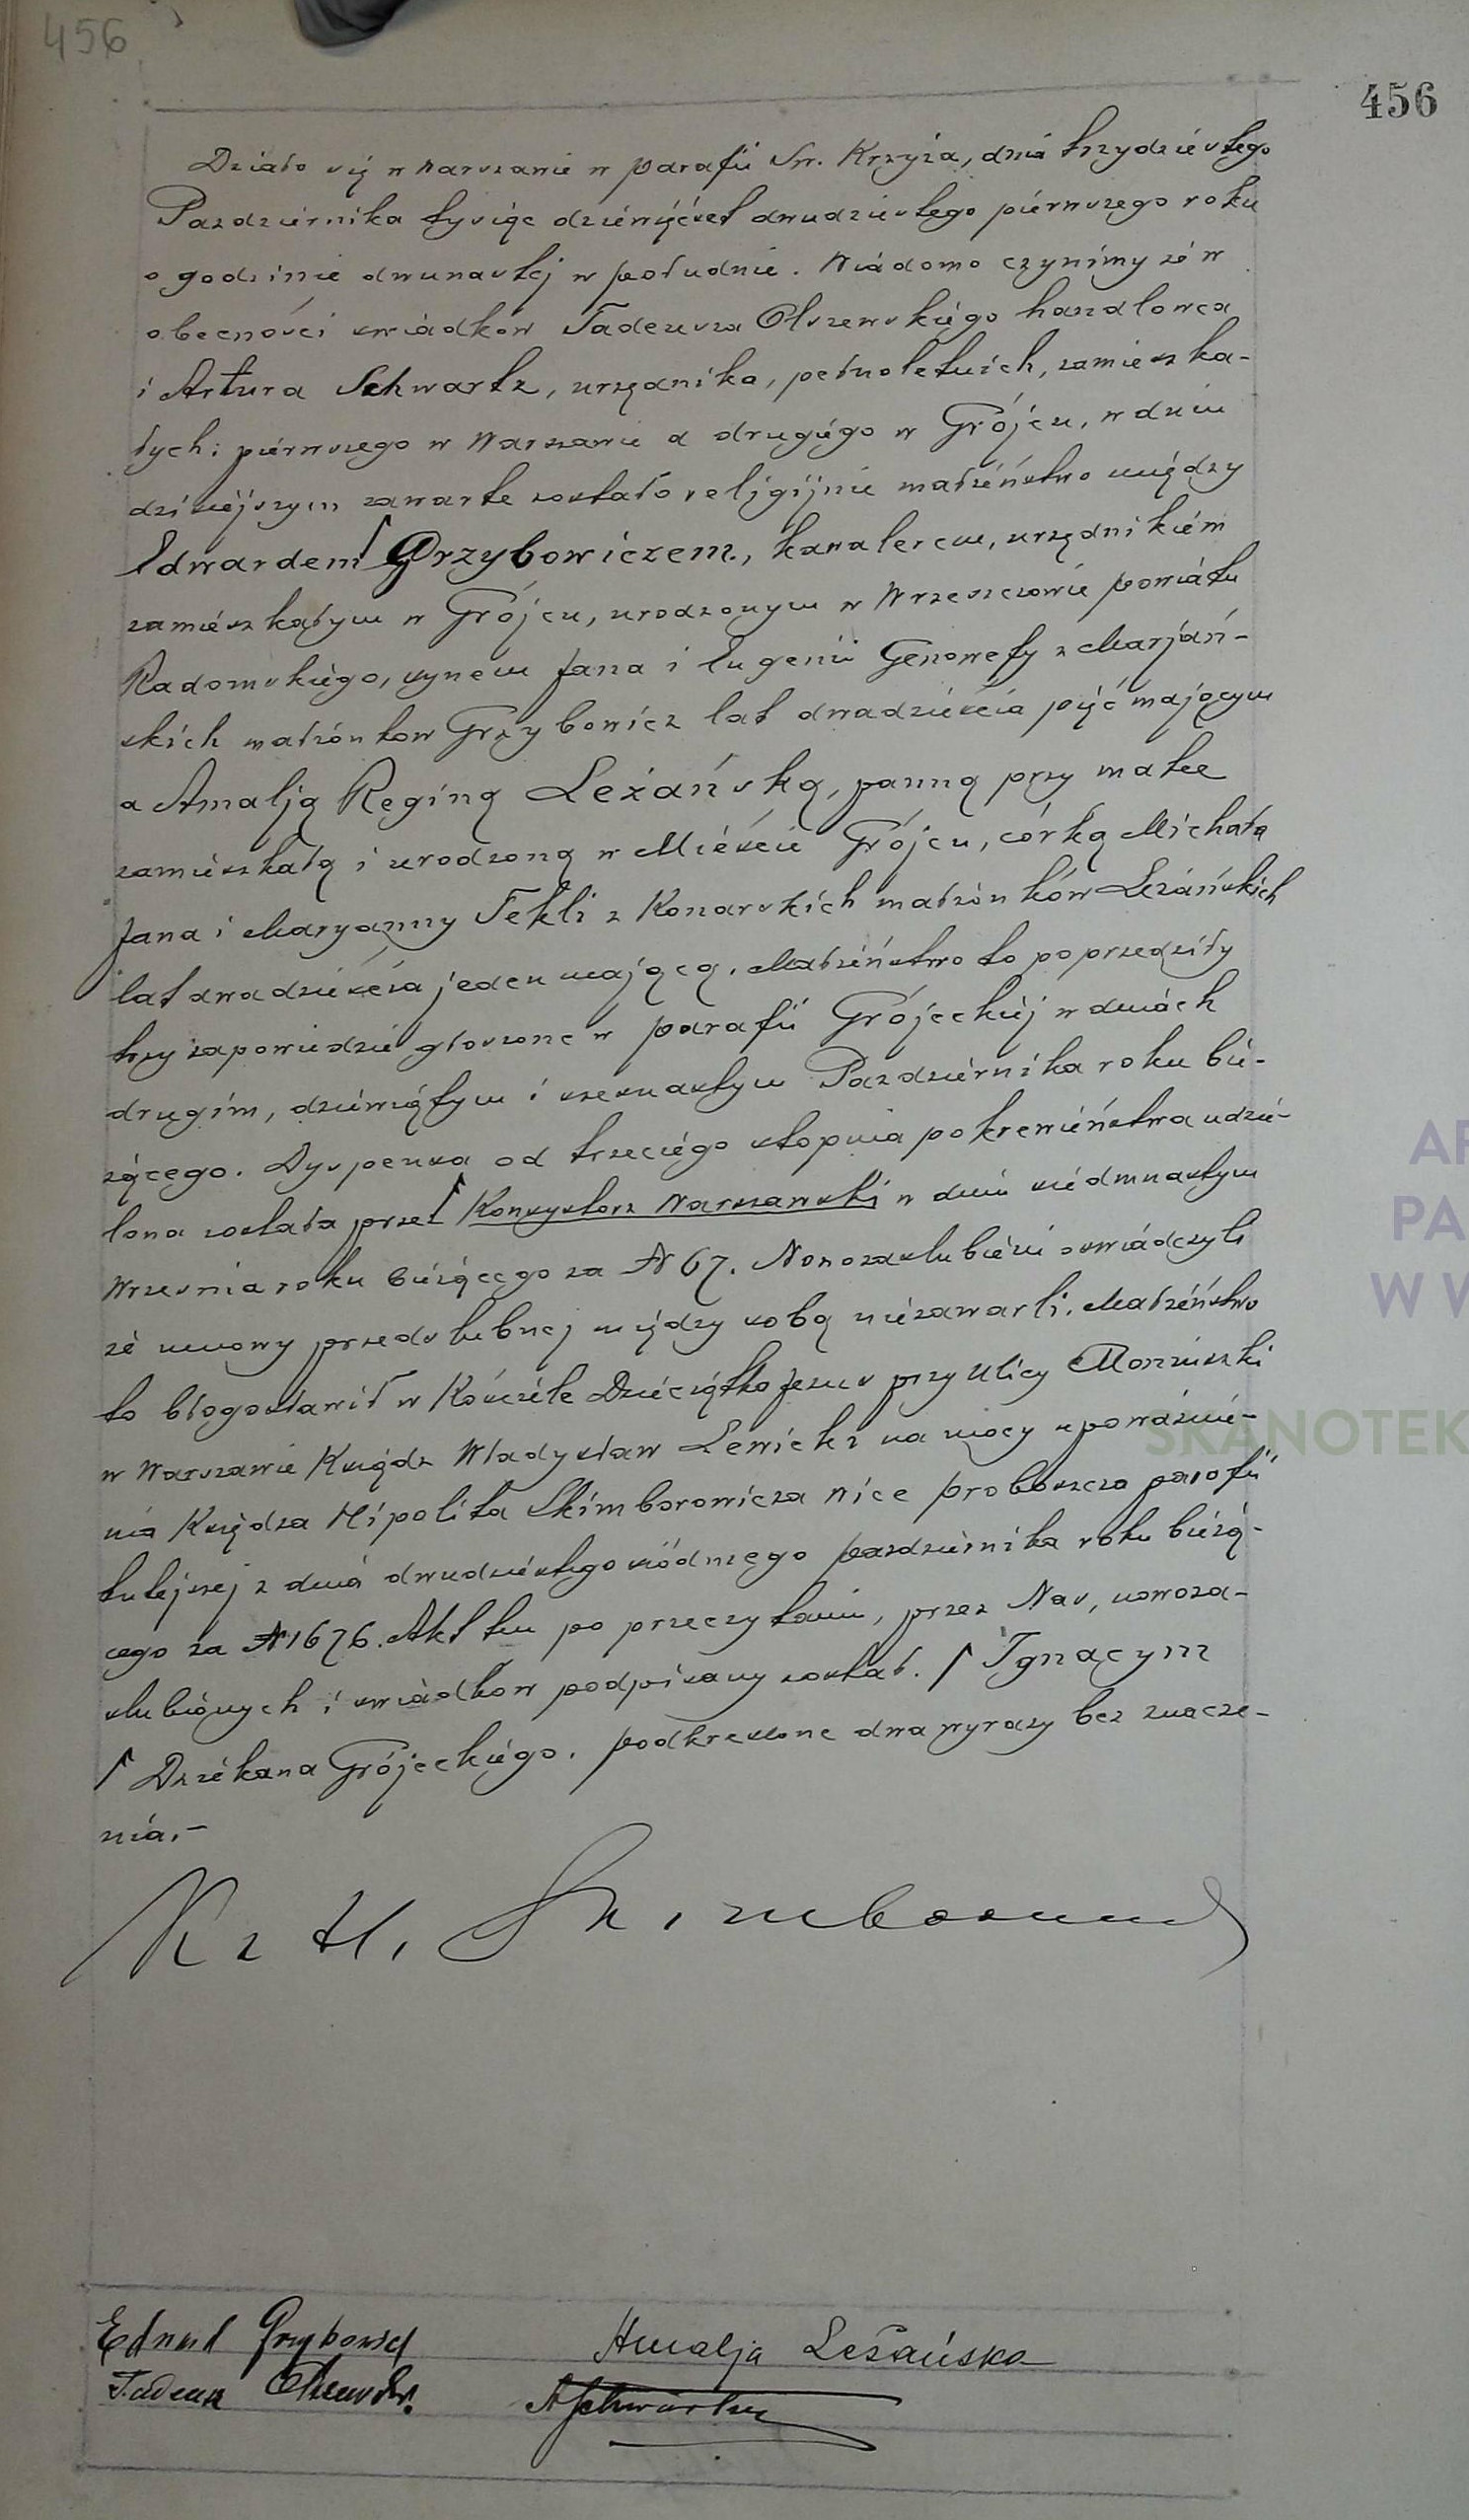 456
456
Działo się w Warszawie w parafii Św. Krzyża, dnia trzydziestego
Pazdziernika tysiąc dziewięćset dwudziestego pierwszego roku
o godzinie dwunastej w południe. Wiadomo czynimy że w
obecności swiadków Tadeusza Olszewskiego handlowca
i Artura Schwartz, urzędnika, pełnoletnich, zamieszka-
łych: pierwszego w Warszawie a drugiego w Grójcu, w dniu
dzisiejszym zawarte zostało religijnie małżeństwo między
Edwardem ⌈ Grzybowiczem, kawalerem, urzędnikiem
zamieszkałym w Grójcu, urodzonym w Wrzeszczowie powiatu
Radomskiego, synem Jana i Eugenii Genowefy z Marjań-
skich małżonków Grzybowicz lat dwadzieścia pięć mającym
a Amalją Reginą Leżańską, panną przy matce
zamieszkałą i urodzoną w Mieście Grójcu, córką Michała
Jana i Maryanny Tekli z Konarskich małżonków Leżańskich
lat dwadzieścia jeden mającą. Małżeństwo to poprzedziły
trzy zapowiedzie głoszone w parafii Grójeckiej w dniach
drugim, dziewiątym i szesnastym Pazdziernika roku bie-
żącego. Dyspensa od trzeciego stopnia pokrewieństwa udzie-
lona została przez ⌈ Konsystorz Warszawski w dniu siedmnastym
Wrzesnia roku bieżącego za № 67. Nowozaslubieni oswiadczyli
że umowy przedslubnej między sobą niezawarli. Małżeństwo
to błogosławił w Kościele Dzieciątka Jezus przy ulicy Moniuszki
w Warszawie Ksiądz Władysław Lewicki na mocy upoważnie-
nia Księdza Hipolita Skimborowicza Wice proboszcza parafii
tutejszej z dnia dwudziestego siódmego pazdziernika roku bieżą-
cego za № 1676. Akt ten po przeczytaniu, przez Nas, nowoza-
slubionych i swiadków podpisany został. ⌈ Ignacym
⌈ Dziekana Grójeckiego. podkreslone dwa wyrazy bez znacze-
nia.-
Ks H. Skimborowicz
Edward Grzybowicz Amalja Leżańska
Tadeusz Olszewski. ASchwartz
AR
PA
W W
SKANOTEK